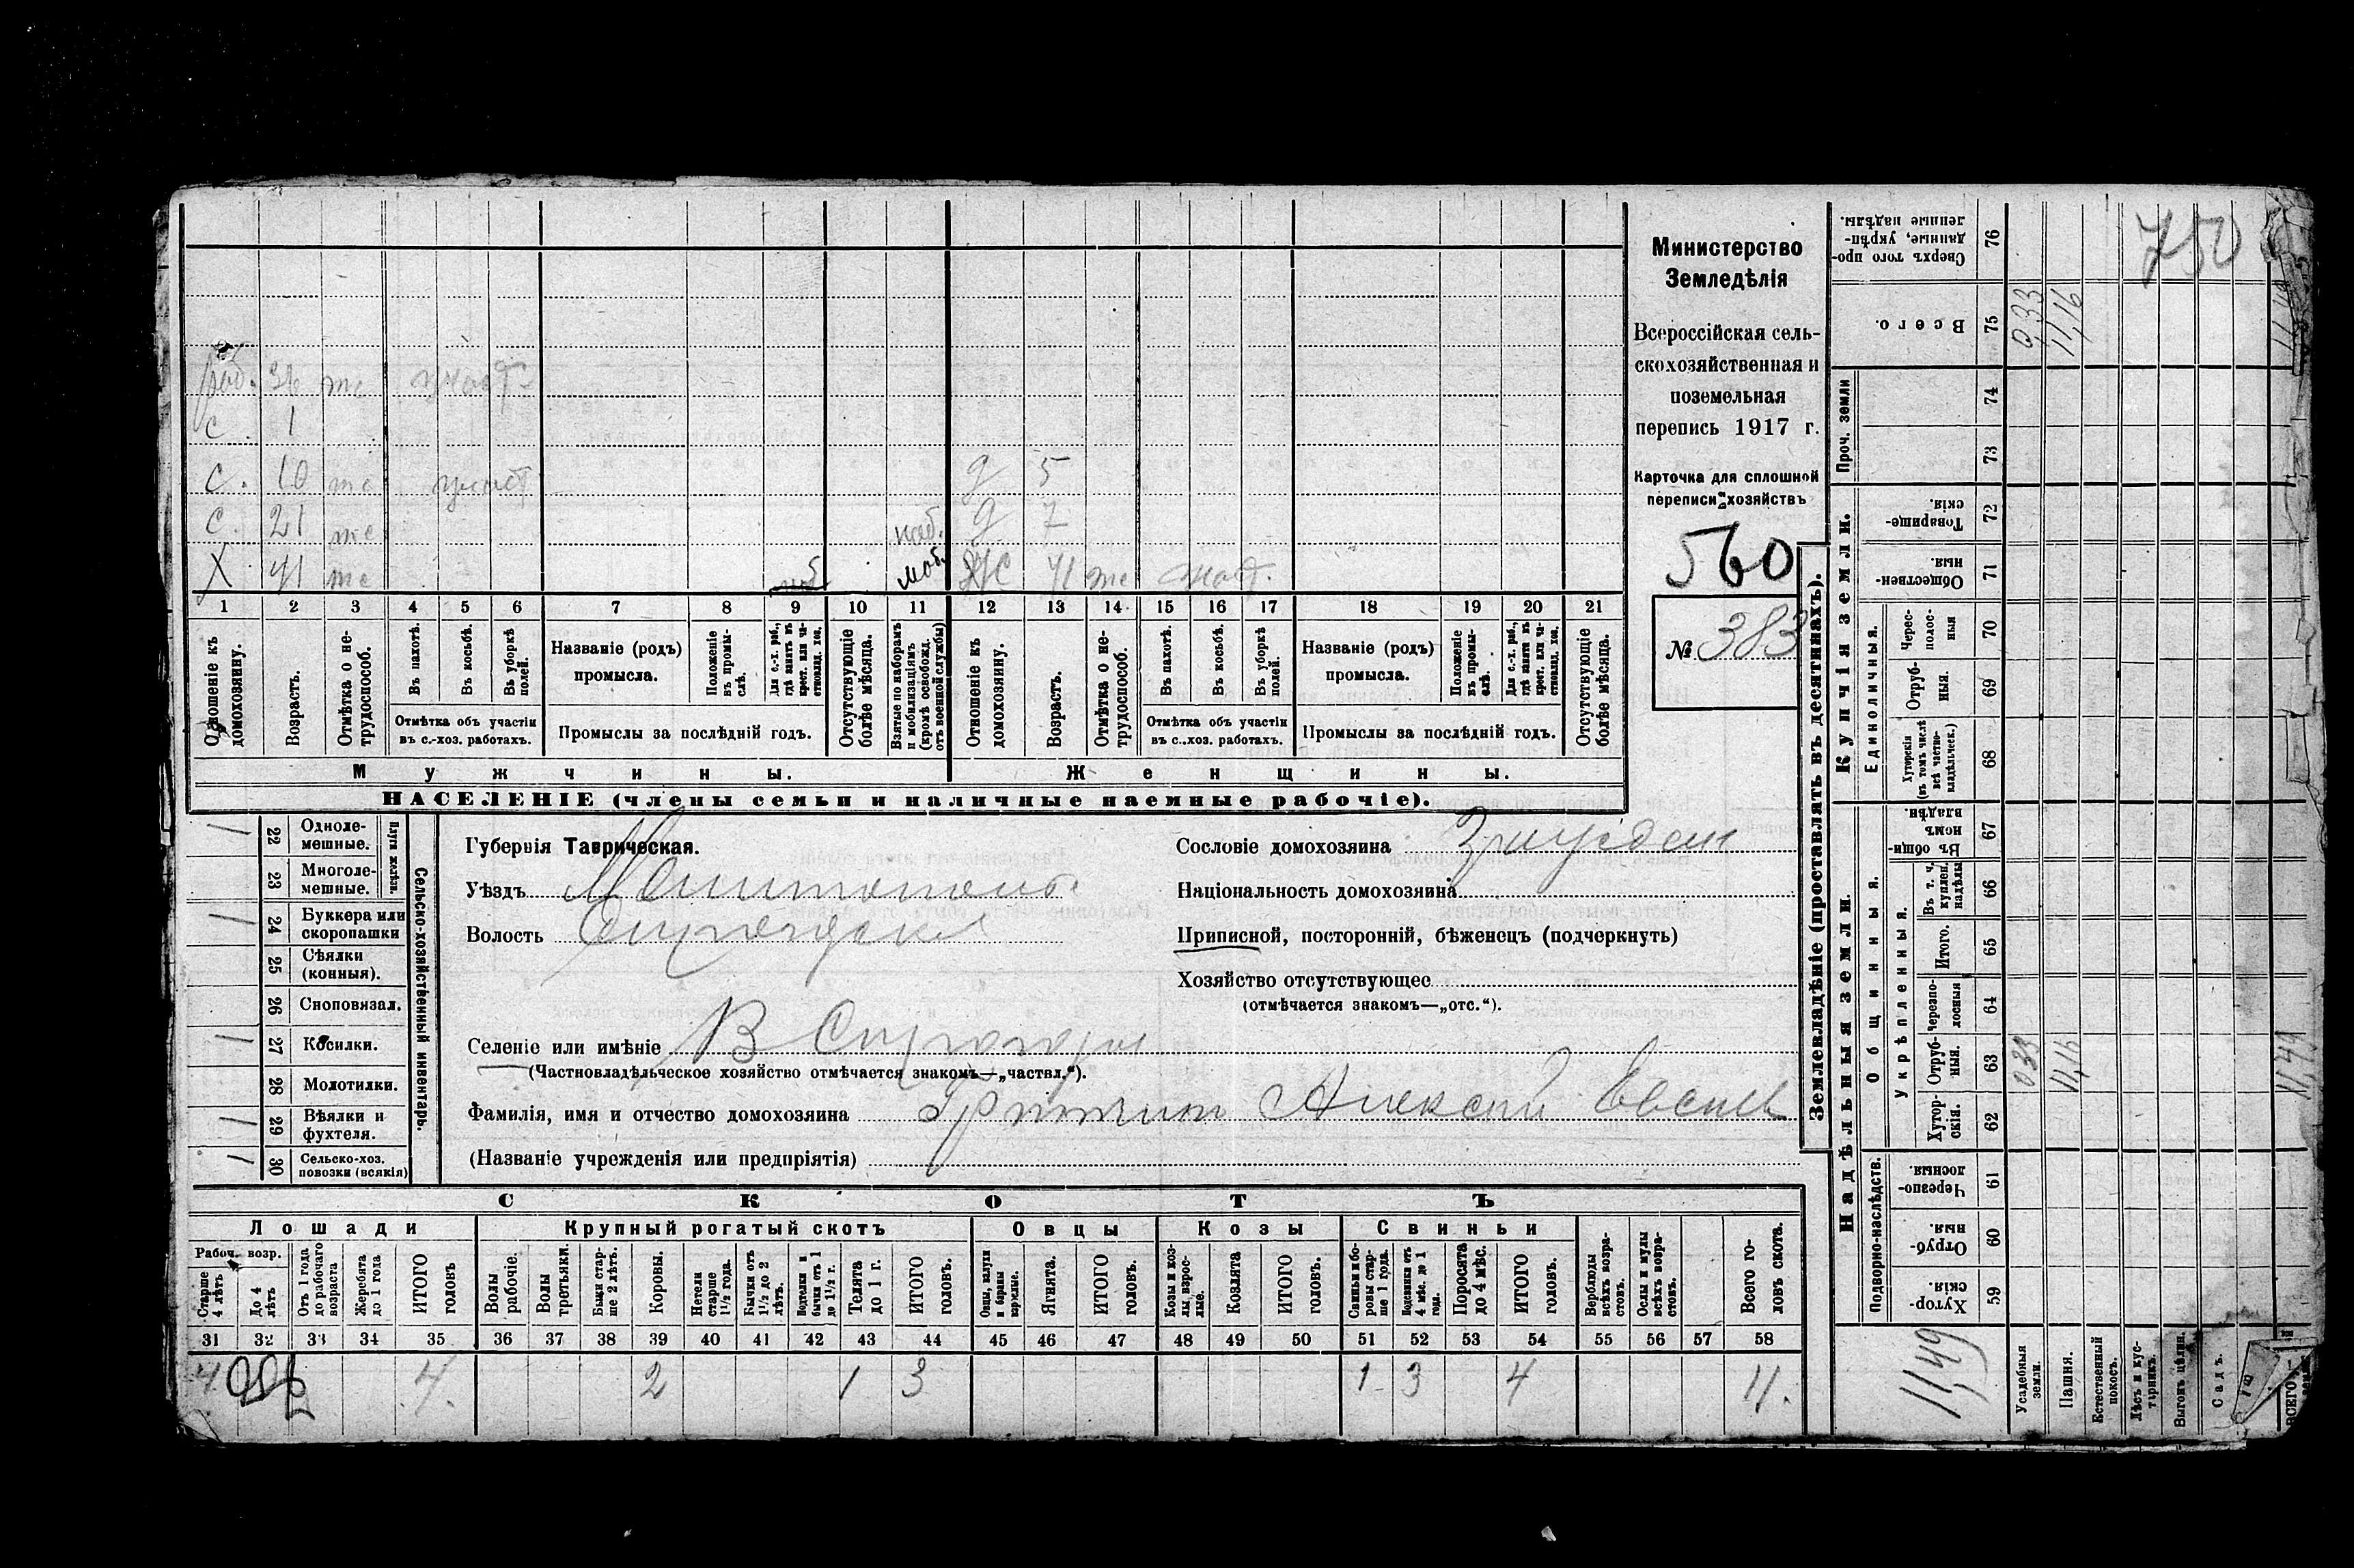 Министерство
Земледѣлія
Всероссійская сель-
скохозяйственная и
поземельная
перепись 1917 г.
Карточка для сплошной
переписи хозяйствъ
560
№ 383
раб. 36 тс
с 1
с. 10 тс
с 21 тс
Х 41 тс моб.
д 5
д 7
Ж 41 тс
1 2 3 4 5 6 7 8 9 10 11 12 13 14 15 16 17 18 19 20 21
Отношеніе къ домохозяину.
Возрастъ.
Отмѣтка о не-трудоспособ.
Въ пахотѣ.
Въ косьбѣ.
Въ уборкѣ полей.
Отмѣтка объ участіи въ с.-хоз. работахъ.
Названіе (родъ) промысла.
Положеніе въ промы-слѣ.
Для с.-х. раб., гдѣ занятъ въ крест. или ча-стновлад. хоз.
Промыслы за послѣдній годъ.
Отсутствующіе болѣе мѣсяца.
Взятые по наборамъ и мобилизаціямъ (кромѣ освобожд. отъ военной службы)
Отношеніе къ домохозяину.
Возрастъ.
Отмѣтка о не-трудоспособ.
Въ пахотѣ.
Въ косьбѣ.
Въ уборкѣ полей.
Отмѣтка объ участіи въ с.-хоз. работахъ.
Названіе (родъ) промысла.
Положеніе въ промы-слѣ.
Для с.-х. раб., гдѣ заняты въ крест. или ча-стновлад. хоз.
Промыслы за послѣдній годъ.
Отсутствующіе болѣе мѣсяца.
Мужчины.
Женщины.
НАСЕЛЕНІЕ (члены семьи и наличные наемные рабочіе).
Сельско-хозяйственный инвентарь.
Плуги желѣзн.
1 22 Одноле-мешные.
23 Многоле-мешные.
1 24 Буккера или скоропашки
25 Сѣялки (конныя).
26 Сноповязал.
1 27 Косилки.
28 Молотилки.
1 29 Вѣялки и фухтеля.
1 30 Сельско-хоз. повозки (всякія)
Губернія Таврическая.
Уѣздъ
Волость
Селеніе или имѣніе
(Частновладѣльческое хозяйство отмѣчается знакомъ—„частвл.“).
Фамилія, имя и отчество домохозяина Алексей
(Названіе учрежденія или предпріятія)
Сословіе домохозяина
Національность домохозяина
Приписной, посторонній, бѣженецъ (подчеркнуть)
Хозяйство отсутствующее
(отмѣчается знакомъ—„отс.“).
СКОТЪ
Лошади
Крупный рогатый скотъ
Овцы
Козы
Свиньи
Рабоч. возр.
Старше 4 лѣтъ
До 4 лѣтъ
Отъ 1 года до рабочаго возраста
Жеребята до 1 года
ИТОГО головъ
Волы рабочіе.
Волы третьяки.
Быки стар-ше 2 лѣтъ.
Коровы.
Нетели старше 1½ года.
Бычки отъ 1½ до 2 лѣтъ.
Подтелки и бычки отъ 1 до 1½ г.
Телята до 1 г.
ИТОГО головъ.
Овцы, валухи и бараны взрослые.
Ягнята.
ИТОГО головъ.
Козы и коз-лы, взрос-лые.
Козлята
ИТОГО головъ.
Свиньи и бо-ровы стар-ше 1 года.
Подсвинки отъ 4 мѣс. до 1 года.
Поросята до 4 мѣс.
ИТОГО головъ.
Верблюды всѣхъ возра-стовъ.
Ослы и мулы всѣхъ возра-стовъ.
Всего го-ловъ скота.
31 32 33 34 35 36 37 38 39 40 41 42 43 44 45 46 47 48 49 50 51 52 53 54 55 56 57 58
4 4. 2 1 3 1 3 4 11.
750
Землевладѣніе (проставлять въ десятинахъ).
Надѣльныя земли.
Купчія земли.
Проч. земли
Подворно-наслѣдств.
Общинныя.
Укрѣпленныя.
Единоличныя.
Хутор-скія. 59
Отруб-ныя. 60
Черезпо-лосныя 61
Хутор-скія. 62
Отруб-ныя. 63
Черезпо-лосныя 64
Итого. 65
Въ т. ч. куплен. надѣлы 66
Въ общин-номъ владѣн. 67
Хуторскія (въ томъ числѣ всѣ частно-владѣльческ.) 68
Отруб-ныя. 69
Черес-полос-ныя 70
Обществен-ныя. 71
Товарище-скія. 72
73
74
Всего. 75
Сверхъ того про-данные, укрѣп-ленные надѣлы. 76
Усадебныя земли.
Пашня.
Естественный покосъ.
Лѣсъ и кус-тарникъ.
Выгонъ цѣлин.
Садъ.
ВСЕГО
11,49
0,33
11,16
11,49
0,33
11,16
750